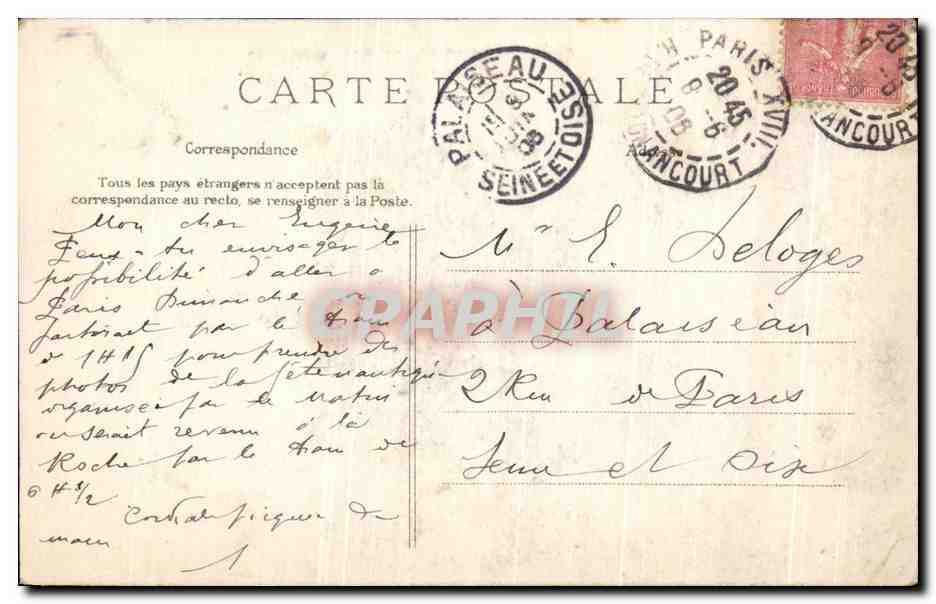 CARTE POSTALE
PALAISEAU
SEINE ET OISE
08
PARIS XVIII
20 45
8 - 6
08
ANCOURT
20 45
ANCOURT
Correspondance
Tous les pays étrangers n'acceptent pas la
correspondance au recto, se renseigner à la Poste.
Mon cher Eugène
Peux-tu envisager la
possibilité d'aller à
Paris Dimanche
partirait par le train
d 1H15 pour prendre des
photos de la fête nautique
organisée par le Matin
on serait revenu à la
Roche par le train de
6 H 1/2
Cordiale de
main
Mr E. Deloges
à Palaiseau
2 Rue de Paris
Seine et Oise
CPAPHIL